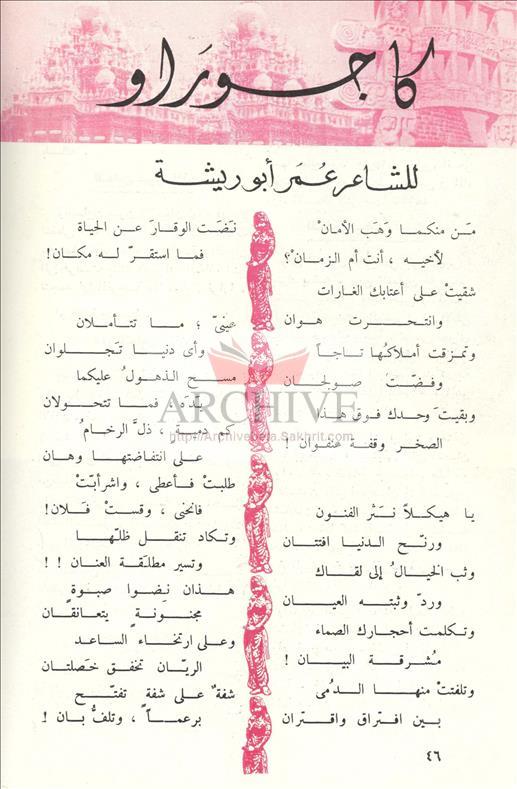 كاجوراو
للشاعر عمر أبو ريشة
مَن منكما وَهَب الأمانْ
لأخيه ، أنت أم الزمانْ؟
شقيتْ على أعتابك الغارات
وانتحرت هوان
وتمزقت أملاكها تاجاً
وفضّت صولجان
وبقيتَ وحدك فوق هذا
الصخر وقفة عنفوان !
يا هيكلاً نثر الفنون
ورنّح الدنيا افتتان
وثب الخيالُ إلى لقاك
وردّ وثبته العيان
وتكلمت أحجارك الصماء
مُشرقة البيان !
وتلفتتْ منها الدمى
بين افتراق واقتران
نضَت الوقارَ عن الحياة
فما استقرّ له مكان!
عينيّ ؛ ما تتأملان
وأى دنيا تجلوان
مسح الذهولُ عليكما
يده، فما تتحولان
كم دمية ، ذلّ الرخامُ
على انتفاضتها وهان
طلبتْ فأعطى ، واشرأبّتْ
فانحنى ، وقستْ فلان!
وتكاد تنقل ظلّها
وتسير مطلقة العنان !!
هذان نضوا صبوةٍ
مجنونةٍ يتعانقان
وعلى ارتخاء الساعد
الريّان تخفق خصلتان
شفةٌ على شفةٍ تفتّح
برعماً ، وتلفّ بان !
٤٦
ARCHIVE
http://Archivebeta.Sakhrit.com